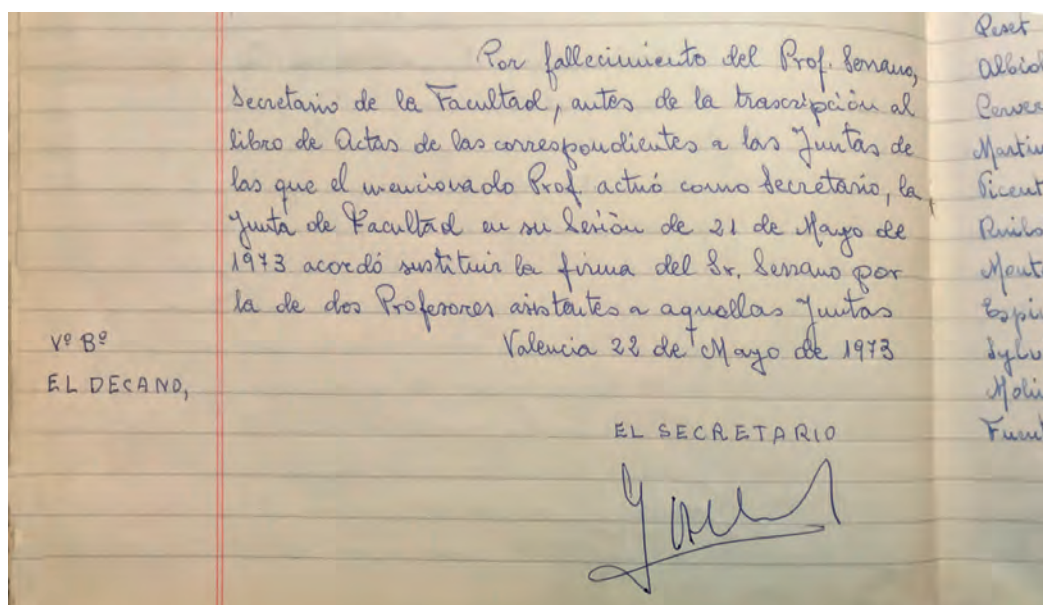 Por fallecimiento del Prof. Serrano,
Secretario de la Facultad, antes de la trascripción al
libro de Actas de las correspondientes a las Juntas de
las que el mencionado Prof. actuó como Secretario, la
Junta de Facultad en su Sesión de 21 de Mayo de
1973 acordó sustituir la firma del Sr. Serrano por
la de dos Profesores asistentes a aquellas Juntas
Valencia 22 de Mayo de 1973
Vº Bº
EL DECANO,
EL SECRETARIO
Peset
Albiol
Cerver
Martin
Vicent
Molin